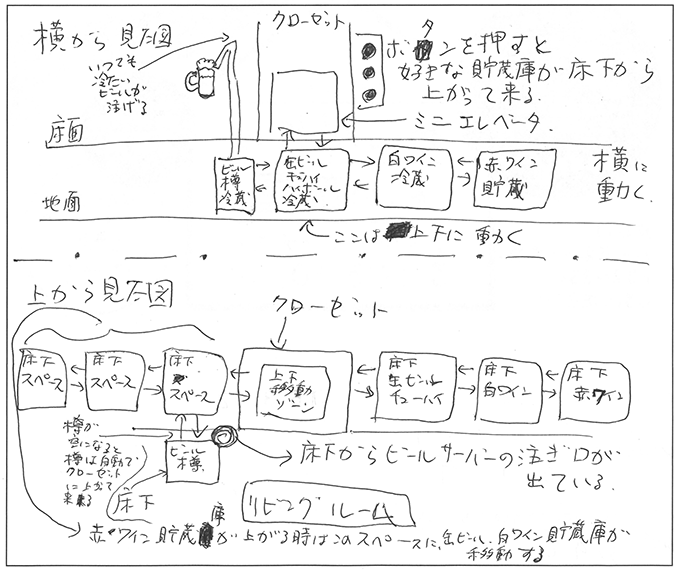 横から見た図
いつでも
冷たい
ビールが
注げる
クローゼット
ボタンを押すと
好きな貯蔵庫が床下から
上がって来る。
ミニエレベータ。
床面
ビール
樽
冷蔵
缶ビール
チュハイ
ハイボール
冷蔵
白ワイン
冷蔵
赤ワイン
貯蔵
横に
動く。
地面
ここは上下に動く
上から見た図
クローゼット
床下
スペース
床下
スペース
床下
スペース
上下
移動
ゾーン
床下
缶ビール
チューハイ
床下
白ワイン
床下
赤ワイン
樽が
空になると
樽は自動で
クローゼット
に上がって
来る
床下
ビール
樽
床下からビールサーバーの注ぎ口が
出ている。
リビングルーム
赤ワイン貯蔵庫が上がる時はこのスペースに、缶ビール、白ワイン貯蔵庫が
移動する